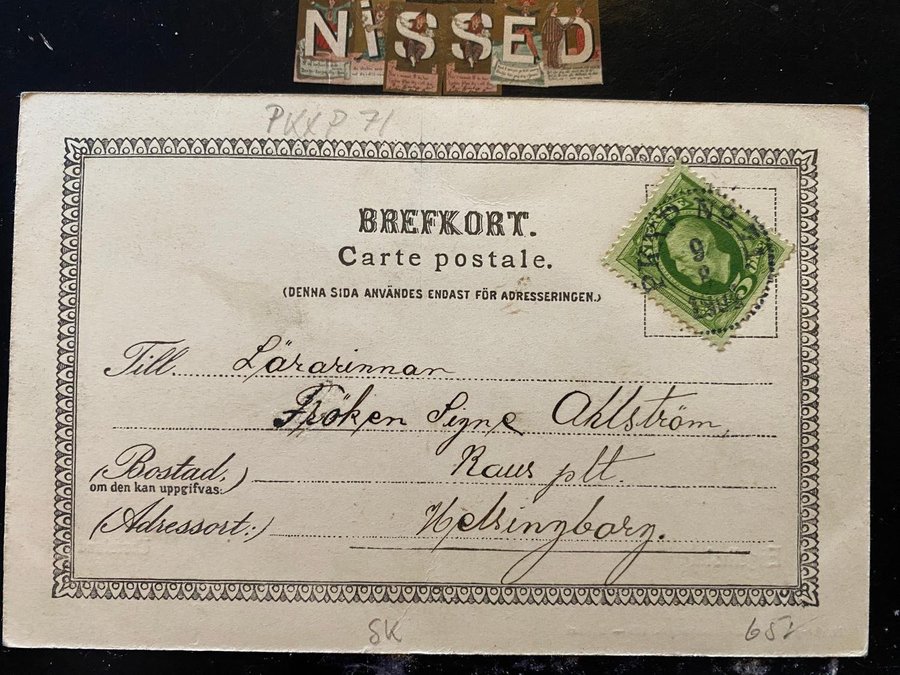 NiSSED
PKXP 71
BREFKORT.
Carte postale.
(DENNA SIDA ANVÄNDES ENDAST FÖR ADRESSERINGEN.)
PKXP No
9
8
5
Till Lärarinnan
Fröken Signe Ahlström,
(Bostad,) Raus plt.
om den kan uppgifvas:
(Adressort:) Helsingborg.
SK